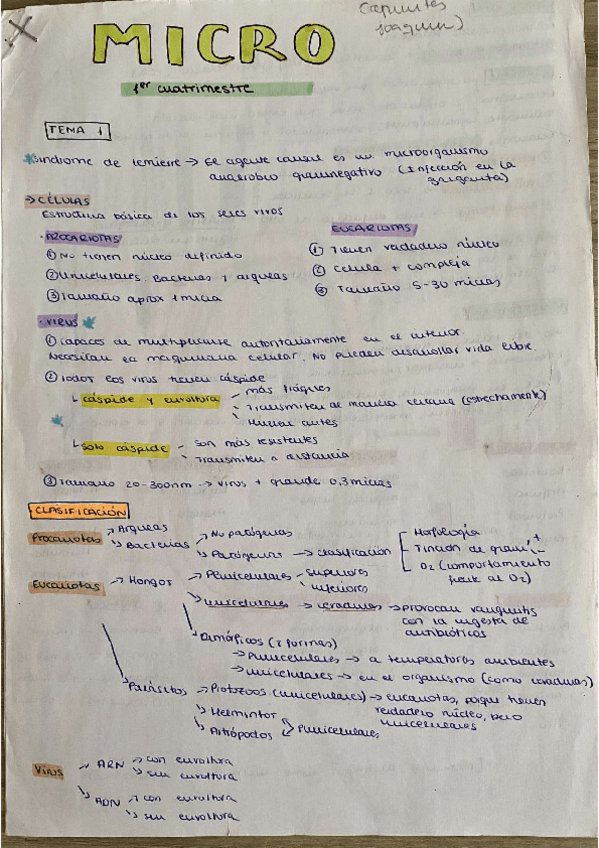 (apuntes
Joaquin)
MICRO
1er cuatrimestre
TEMA 1
*Sindrome de lemierre → El agente causal es un microorganismo
anaerobio gramnegativo (Infección en la
garganta)
→ CÉLULAS
Estructura básica de los seres vivos
· PROCARIOTAS
① No tienen núcleo definido
② Unicelulares. Bacterias y arqueas
③ Tamaño aprox 1 micra
EUCARIOTAS
① Tienen verdadero núcleo
② Célula + compleja
③ Tamaño 5-30 micras
· VIRUS *
① Capaces de multiplicarse autontariamente en el interior.
Necesitan la maquinaria celular. No pueden desarrollar vida libre.
② Todos los virus tienen cáspide
cáspide y envoltura - más frágiles
- Transmiten de manera cercana (estrechamente)
- Mueren antes
*
solo cáspide - son más resistentes
- Transmiten a distancia
③ Tamaño 20-300nm → virus + grande 0,3 micras
· CLASIFICACIÓN
Procariotas → Arqueas
→ Bacterias → No patógenas
→ Patógenas → clasificación
- Morfología
- Tinción de gram + -
- O2 (comportamiento
frente al O2)
Eucariotas → Hongos → Pluricelulares - superiores
- inferiores
→ unicelulares → levaduras → provocan vaginitis
con la ingesta de
antibióticos
Dimórficos (2 formas)
→ Pluricelulares → a temperaturas ambientes
→ unicelulares → en el organismo (como levaduras)
Parásitos → Protozoos (unicelulares) → eucariotas, porque tienen
verdadero núcleo, pero
unicelulares
→ Helmintos
→ Artrópodos
> Pluricelulares
Virus → ARN → con envoltura
→ sin envoltura
→ ADN → con envoltura
→ sin envoltura